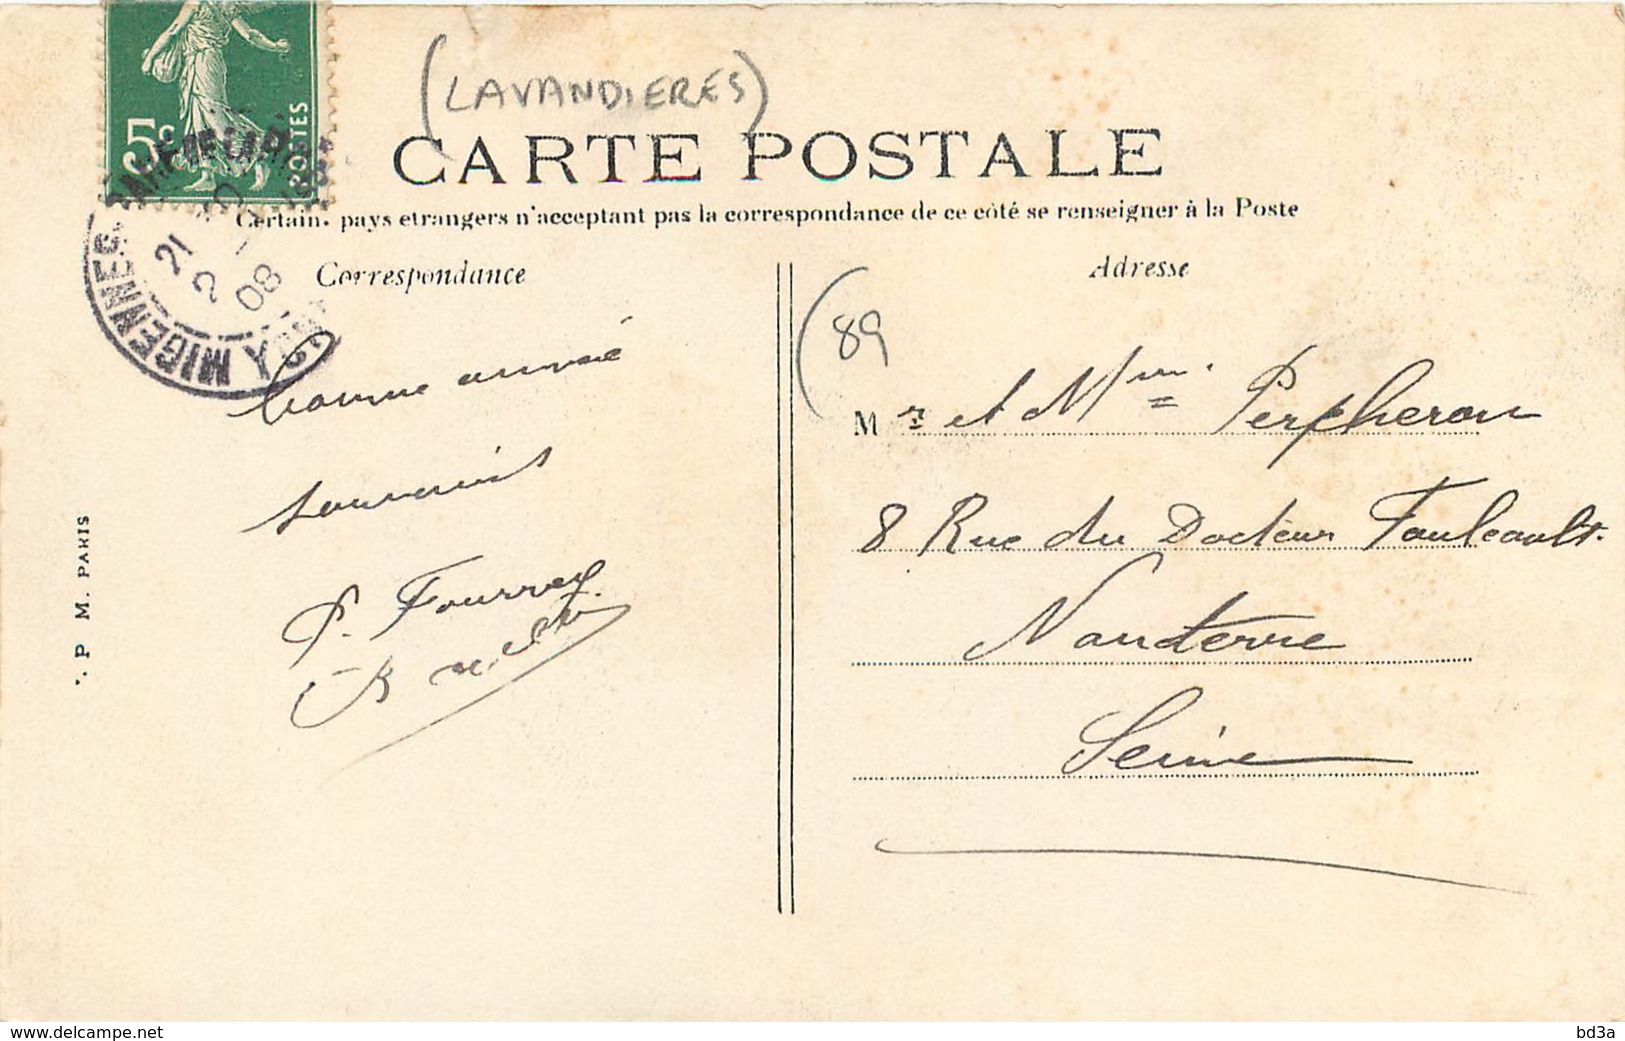 (LAVANDIERES)
5c
POSTES
CARTE POSTALE
Certain. pays etrangers n'acceptant pas la correspondance de ce côté se renseigner à la Poste
MIGENNES
21
2 -
08
Correspondance
Adresse
89
Bonne année
souvenirs
P. Fourrey.
Mr et Mme Perpheron
8 Rue du Docteur Fouleault.
Nanterre
Seine
. P M. PARIS
delcampe.net
bd3a